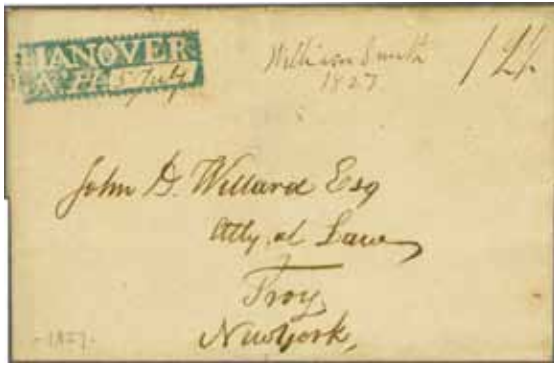 HANOVER
N. H. 5 July
William Smith
1827
12½
John D. Willard Esq
Atty. at Law
Troy
New York,
-1827-